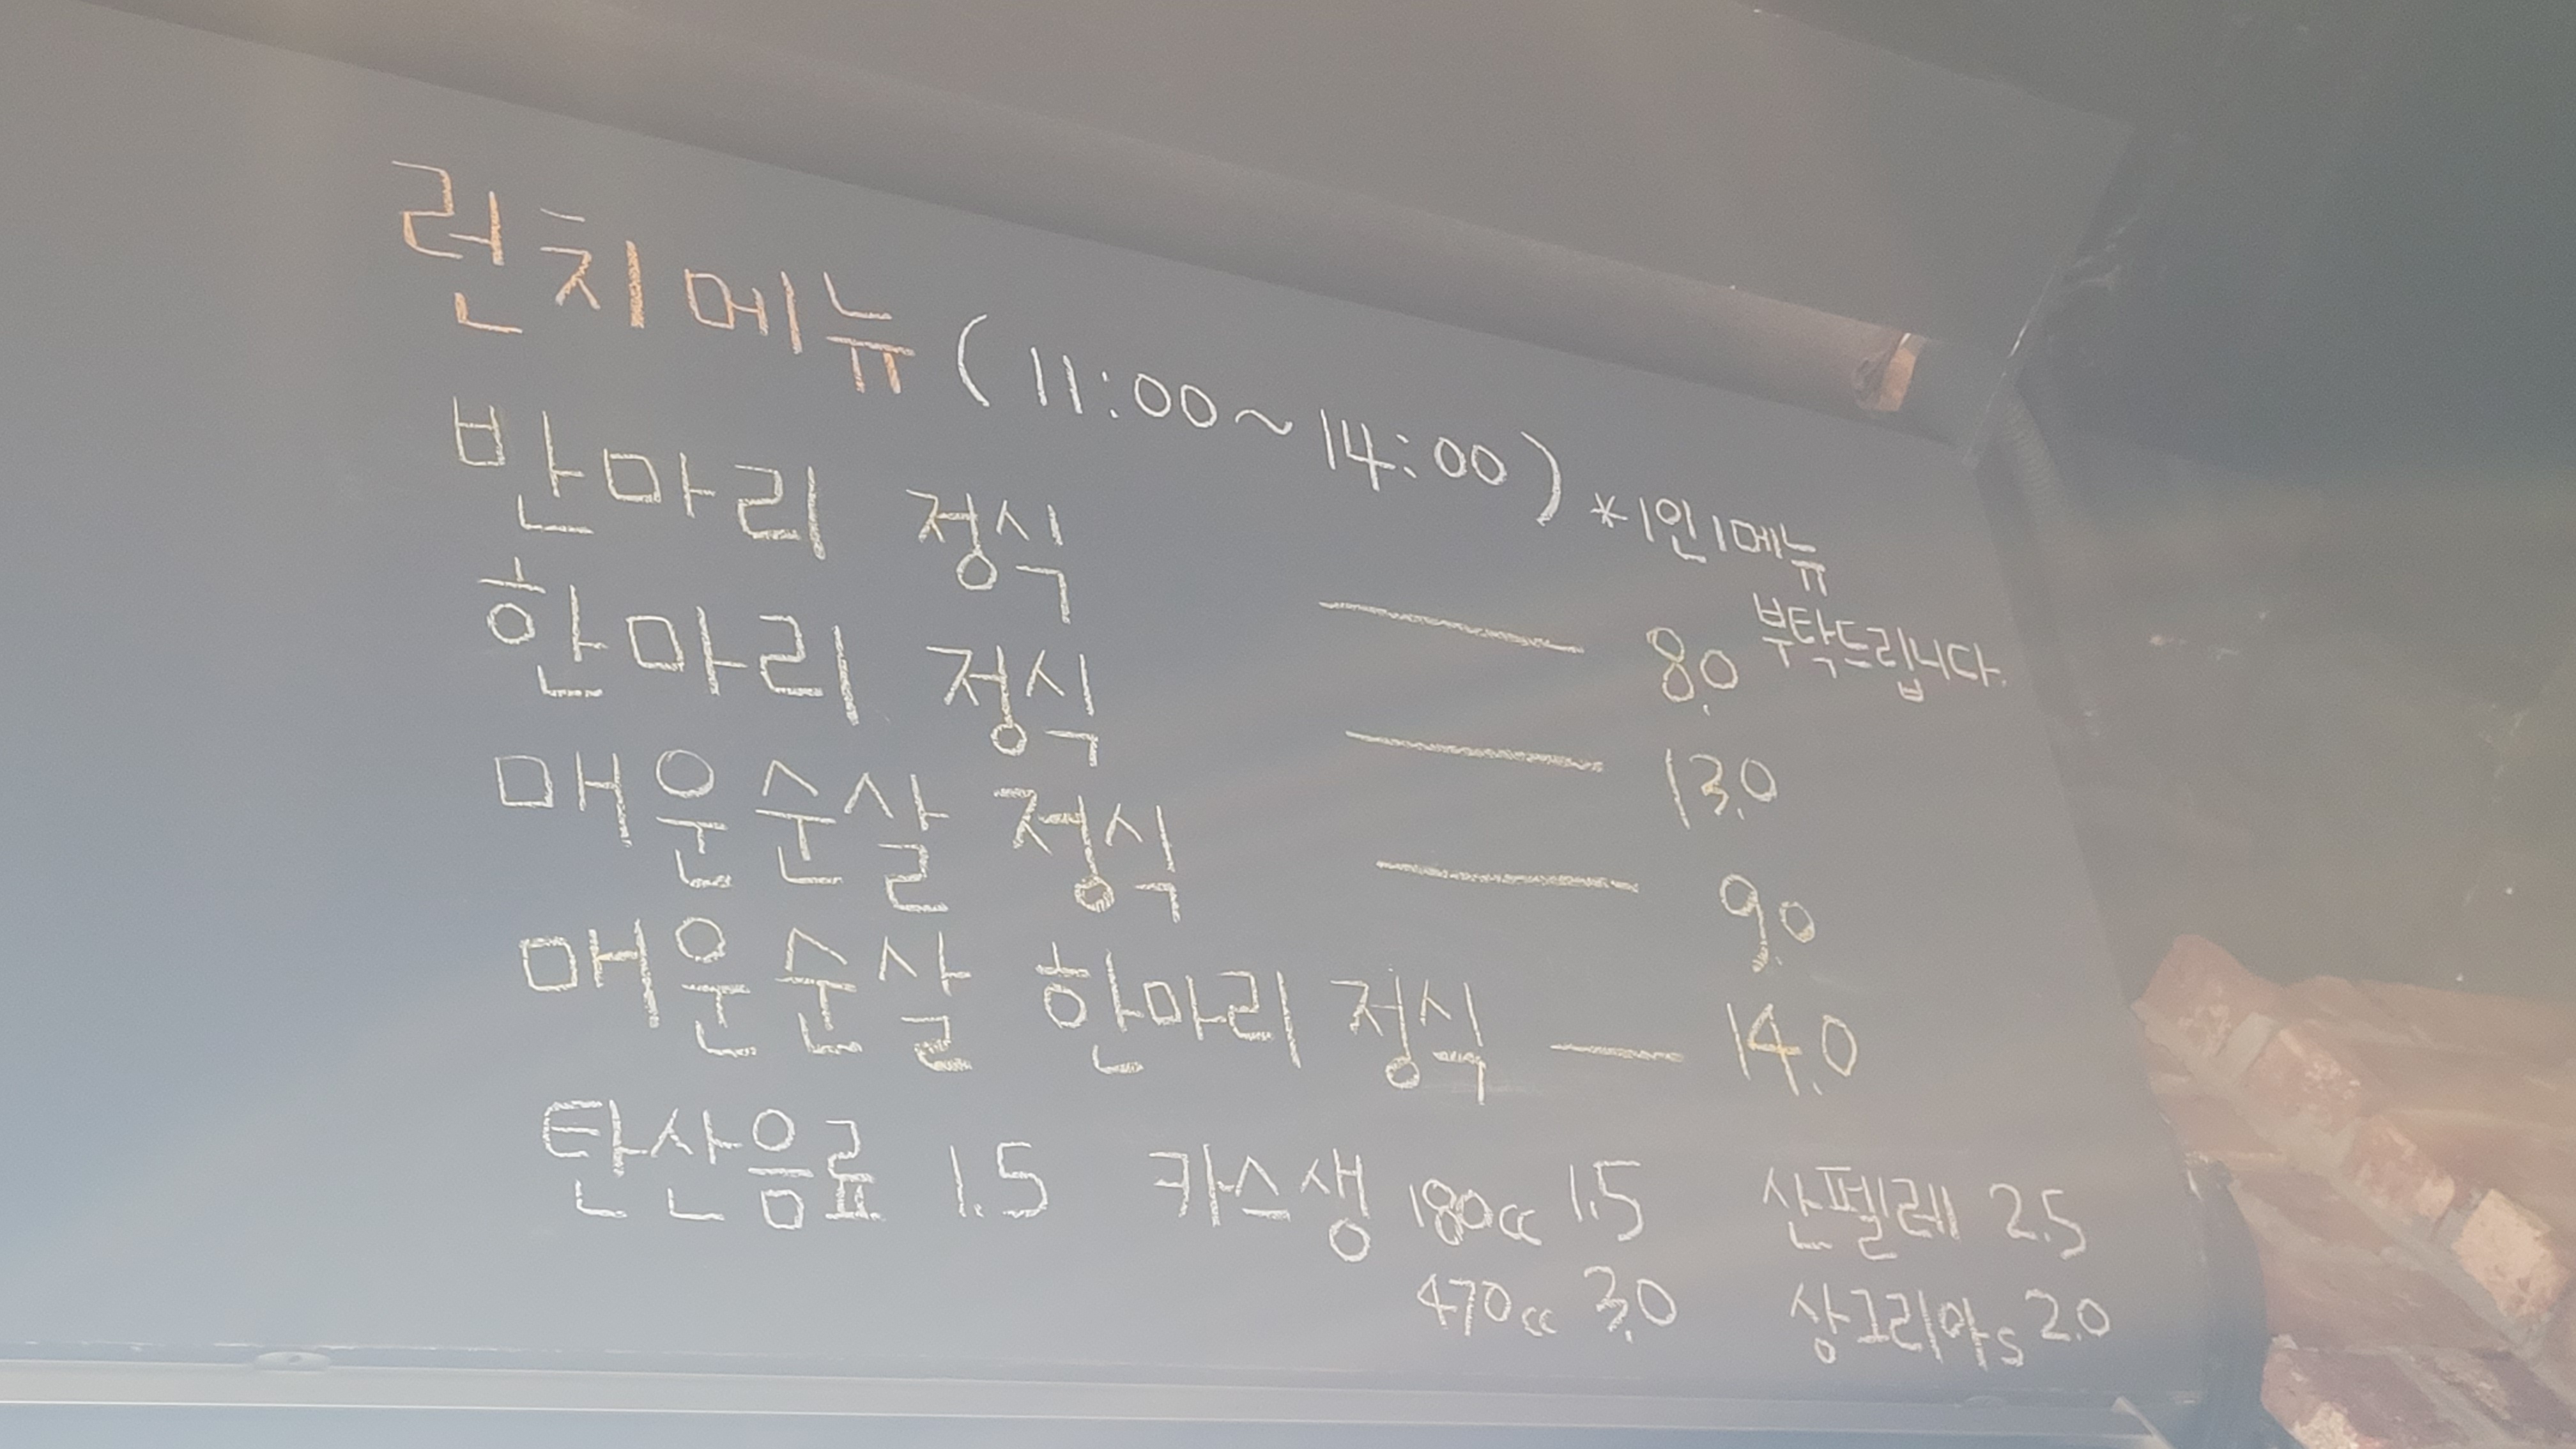 런치메뉴 (11:00~14:00) *1인 1메뉴
부탁드립니다.
반마리 정식 — 8.0
한마리 정식 — 13.0
매운순살 정식 — 9.0
매운순살 한마리 정식 — 14.0
탄산음료 1.5 카스생 180cc 1.5 산펠레 2.5
470cc 3.0 상그리아s 2.0